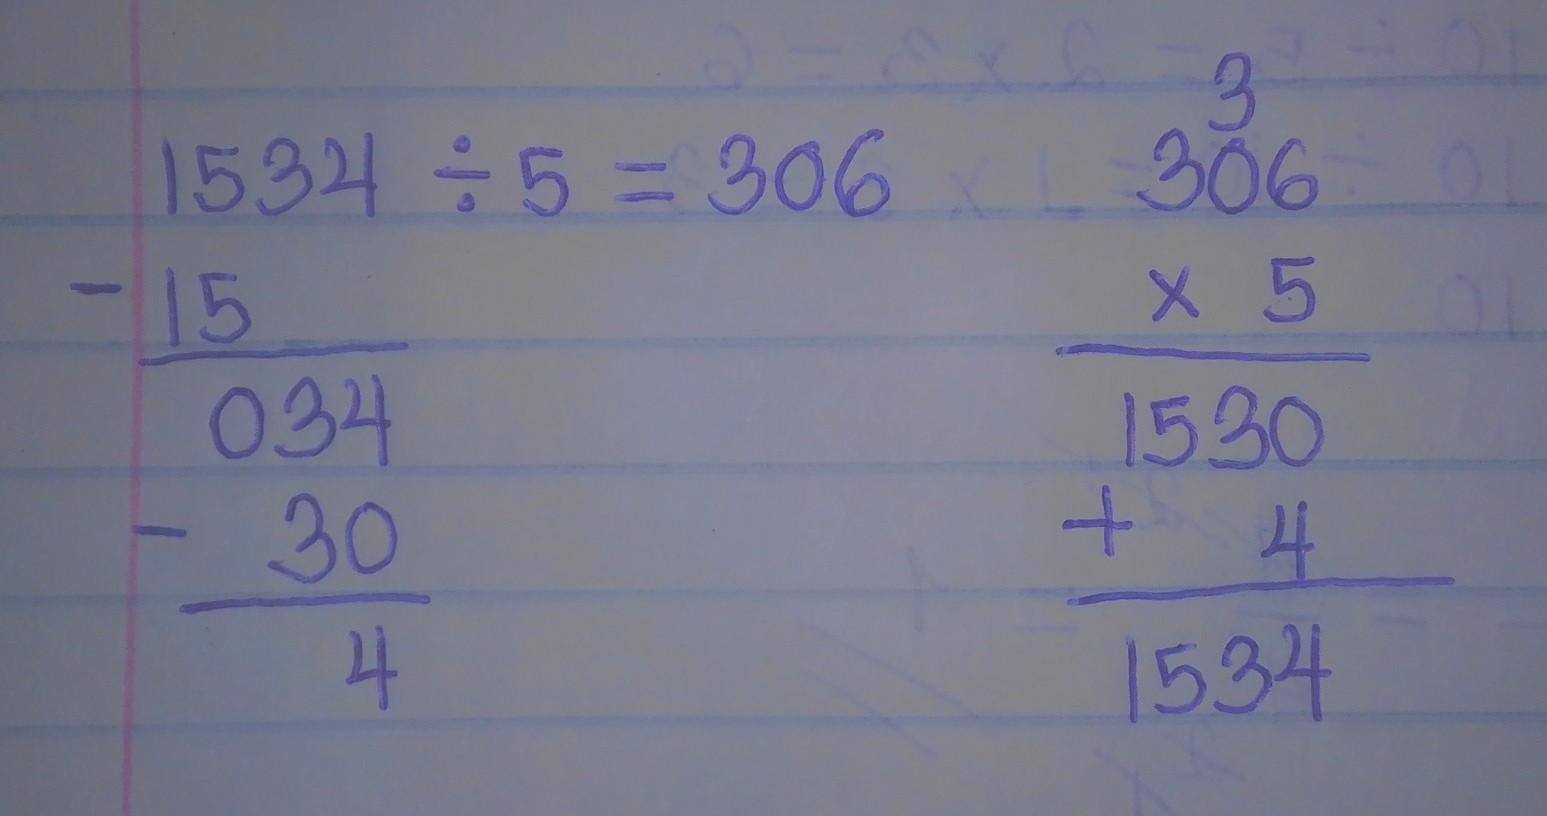 1534 ÷ 5 = 306
- 15
034
- 30
4
3
306
x 5
1530
+ 4
1534